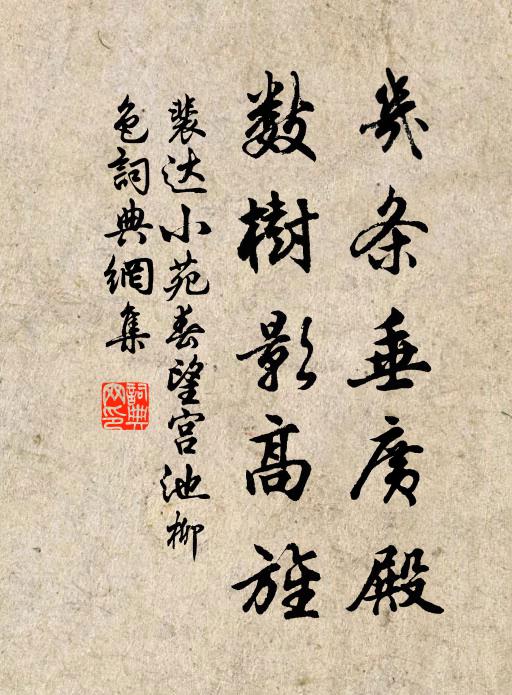 几条垂廣殿
數樹影高旌
裴达小苑春望宫池柳
色詞典網集
詞典
网印